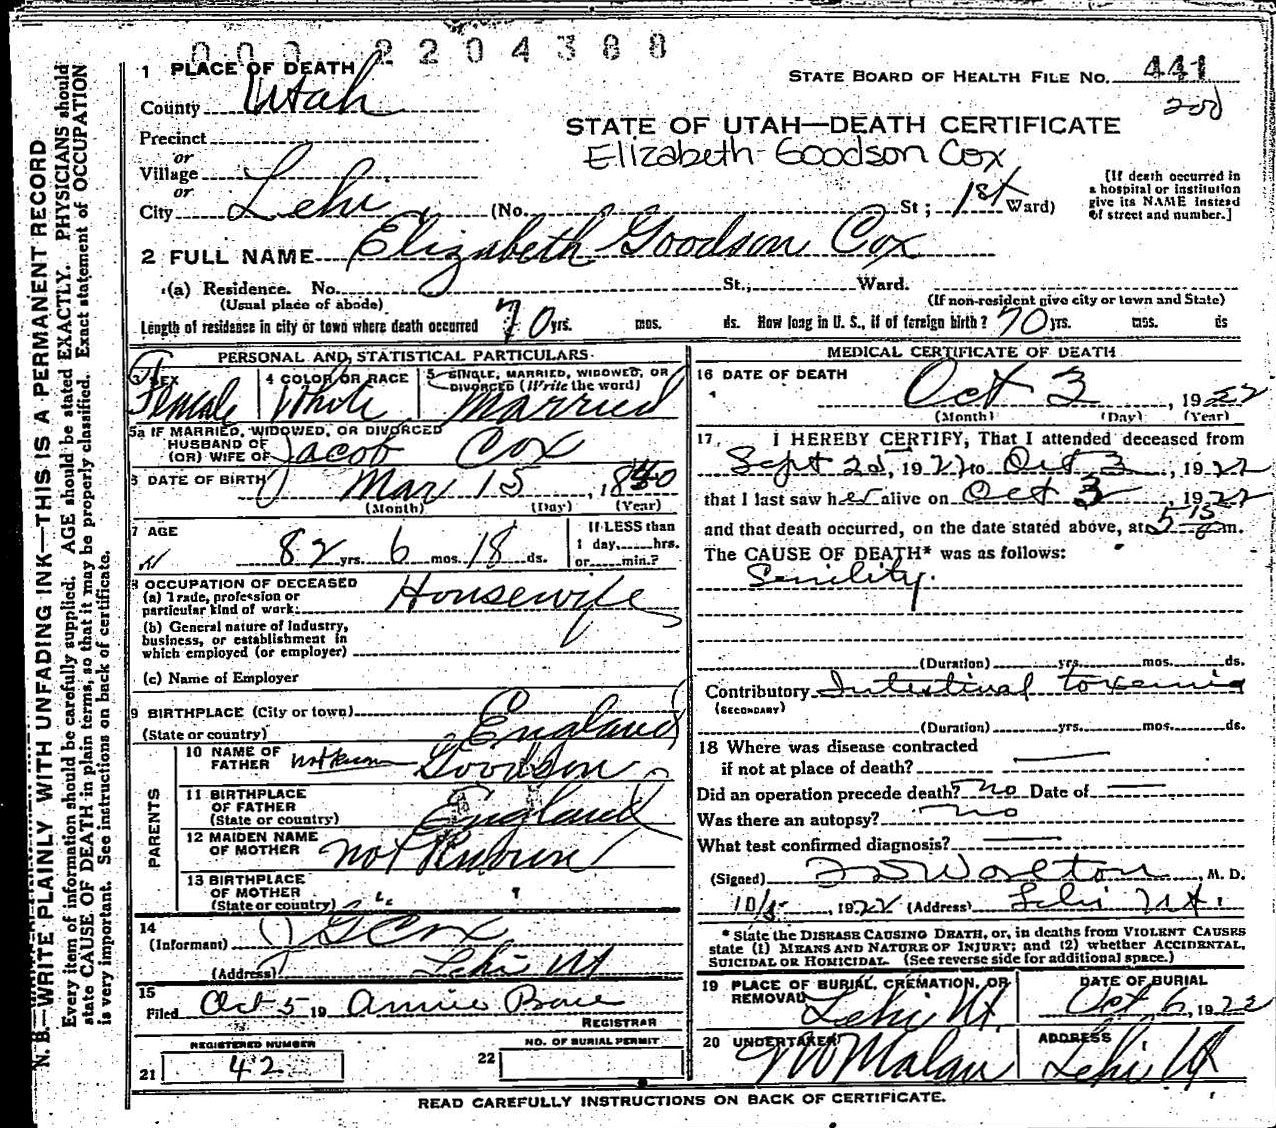 000 2204388
1 PLACE OF DEATH
STATE BOARD OF HEALTH FILE No. 441
County Utah
200
STATE OF UTAH—DEATH CERTIFICATE
Elizabeth Goodson Cox
Precinct
or
Village
or
City Lehi (No. St; 1st Ward)
[If death occurred in
a hospital or institution
give its NAME instead
of street and number.]
2 FULL NAME Elizabeth Goodson Cox
(a) Residence. No. St., Ward.
(Usual place of abode) (If non-resident give city or town and State)
Length of residence in city or town where death occurred 70 yrs. mos. ds. How long in U. S., if of foreign birth? 70 yrs. mos. ds
PERSONAL AND STATISTICAL PARTICULARS
3 SEX Female
4 COLOR OR RACE White
5 SINGLE, MARRIED, WIDOWED, OR
DIVORCED (Write the word)
Married
5a IF MARRIED, WIDOWED, OR DIVORCED
HUSBAND OF
(OR) WIFE OF Jacob Cox
6 DATE OF BIRTH Mar 15, 1840
(Month) (Day) (Year)
7 AGE 82 yrs. 6 mos. 18 ds.
If LESS than
1 day, hrs.
or min.?
8 OCCUPATION OF DECEASED
(a) Trade, profession or
particular kind of work: Housewife
(b) General nature of industry,
business, or establishment in
which employed (or employer)
(c) Name of Employer
9 BIRTHPLACE (City or town)
(State or country) England
PARENTS
10 NAME OF
FATHER not known Goodson
11 BIRTHPLACE
OF FATHER
(State or country) England
12 MAIDEN NAME
OF MOTHER not Known
13 BIRTHPLACE
OF MOTHER
(State or country) " "
14
(Informant) J G Cox
(Address) Lehi Ut
15
Filed Oct 5 19 Annie
REGISTRAR
REGISTERED NUMBER
21 42
NO. OF BURIAL PERMIT
22
MEDICAL CERTIFICATE OF DEATH
16 DATE OF DEATH
Oct 3, 1922
(Month) (Day) (Year)
17 I HEREBY CERTIFY, That I attended deceased from
Sept 25, 1922 to Oct 3, 1922
that I last saw her alive on Oct 3 1922
and that death occurred, on the date stated above, at 5 15 m.
The CAUSE OF DEATH* was as follows:
Senility.
(Duration) yrs. mos. ds.
Contributory Intestinal toxemia
(SECONDARY)
(Duration) yrs. mos. ds.
18 Where was disease contracted
if not at place of death?
Did an operation precede death? no Date of
Was there an autopsy? no
What test confirmed diagnosis?
(Signed) Worlton, M. D.
10/5, 1922 (Address) Lehi Ut.
* State the DISEASE CAUSING DEATH, or, in deaths from VIOLENT CAUSES
state (1) MEANS AND NATURE OF INJURY; and (2) whether ACCIDENTAL,
SUICIDAL OR HOMICIDAL. (See reverse side for additional space.)
19 PLACE OF BURIAL, CREMATION, OR
REMOVAL Lehi Ut.
DATE OF BURIAL
Oct 6, 1922
20 UNDERTAKER Malan
ADDRESS
Lehi Ut
READ CAREFULLY INSTRUCTIONS ON BACK OF CERTIFICATE.
N. B.—WRITE PLAINLY WITH UNFADING INK—THIS IS A PERMANENT RECORD
Every item of information should be carefully supplied. AGE should be stated EXACTLY. PHYSICIANS should
state CAUSE OF DEATH in plain terms, so that it may be properly classified. Exact statement of OCCUPATION
is very important. See instructions on back of certificate.